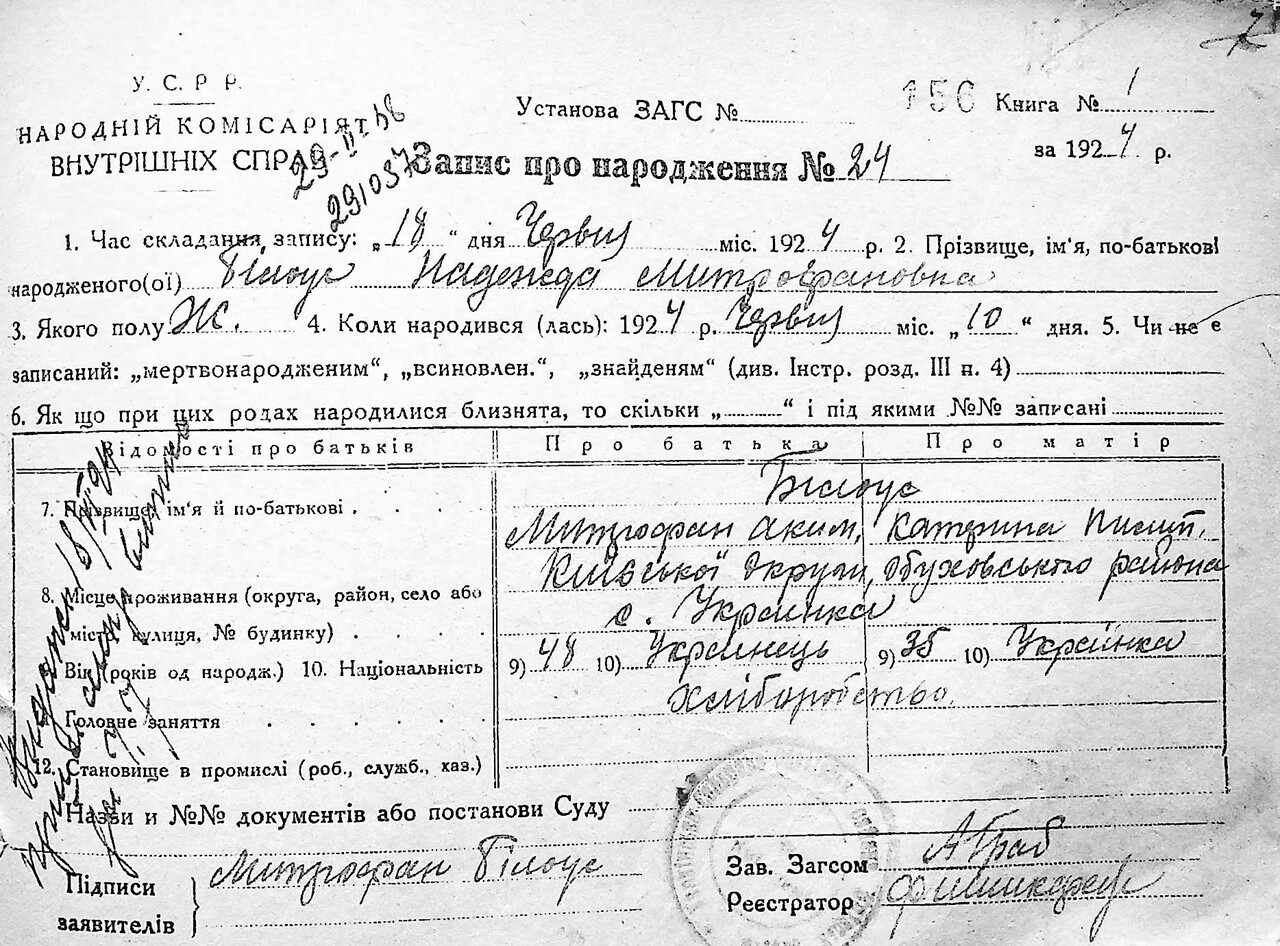 7
У. С. Р Р.
НАРОДНІЙ КОМІСАРІЯТ
ВНУТРІШНІХ СПРАВ
29-II-48
291057
Установа ЗАГС №
156 Книга № 1
за 1924 р.
Запис про народження № 24
1. Час складання запису: „18“ дня Червня міс. 1924 р. 2. Прізвище, ім'я, по-батькові
народженого(ої) Білоус Надежда Митрофановна
3. Якого полу Ж. 4. Коли народився (лась): 1924 р. Червня міс. „10“ дня. 5. Чи не є
записаний: „мертвонародженим“, „всиновлен.“, „знайденям“ (див. Інстр. розд. III п. 4)
6. Як що при цих родах народилися близнята, то скільки „ “ і під якими №№ записані
Відомості про батьків Про батька Про матір
Білоус
7. Прізвище, ім'я й по-батькові
Митрофан Аким, Катерина
Київської Округи, Обуховського района
8. Місце проживання (округа, район, село або
с. Українка
місто, вулиця, № будинку)
Вік (років од народж.) 10. Національність 9) 48 10) Українець 9) 35 10) Українка
Головне заняття Хліборобство.
12. Становище в промислі (роб., служб., хаз.)
Назви и №№ документів або постанови Суду
Підписи
заявителів
Митрофан Білоус
Зав. Загсом
Реєстратор